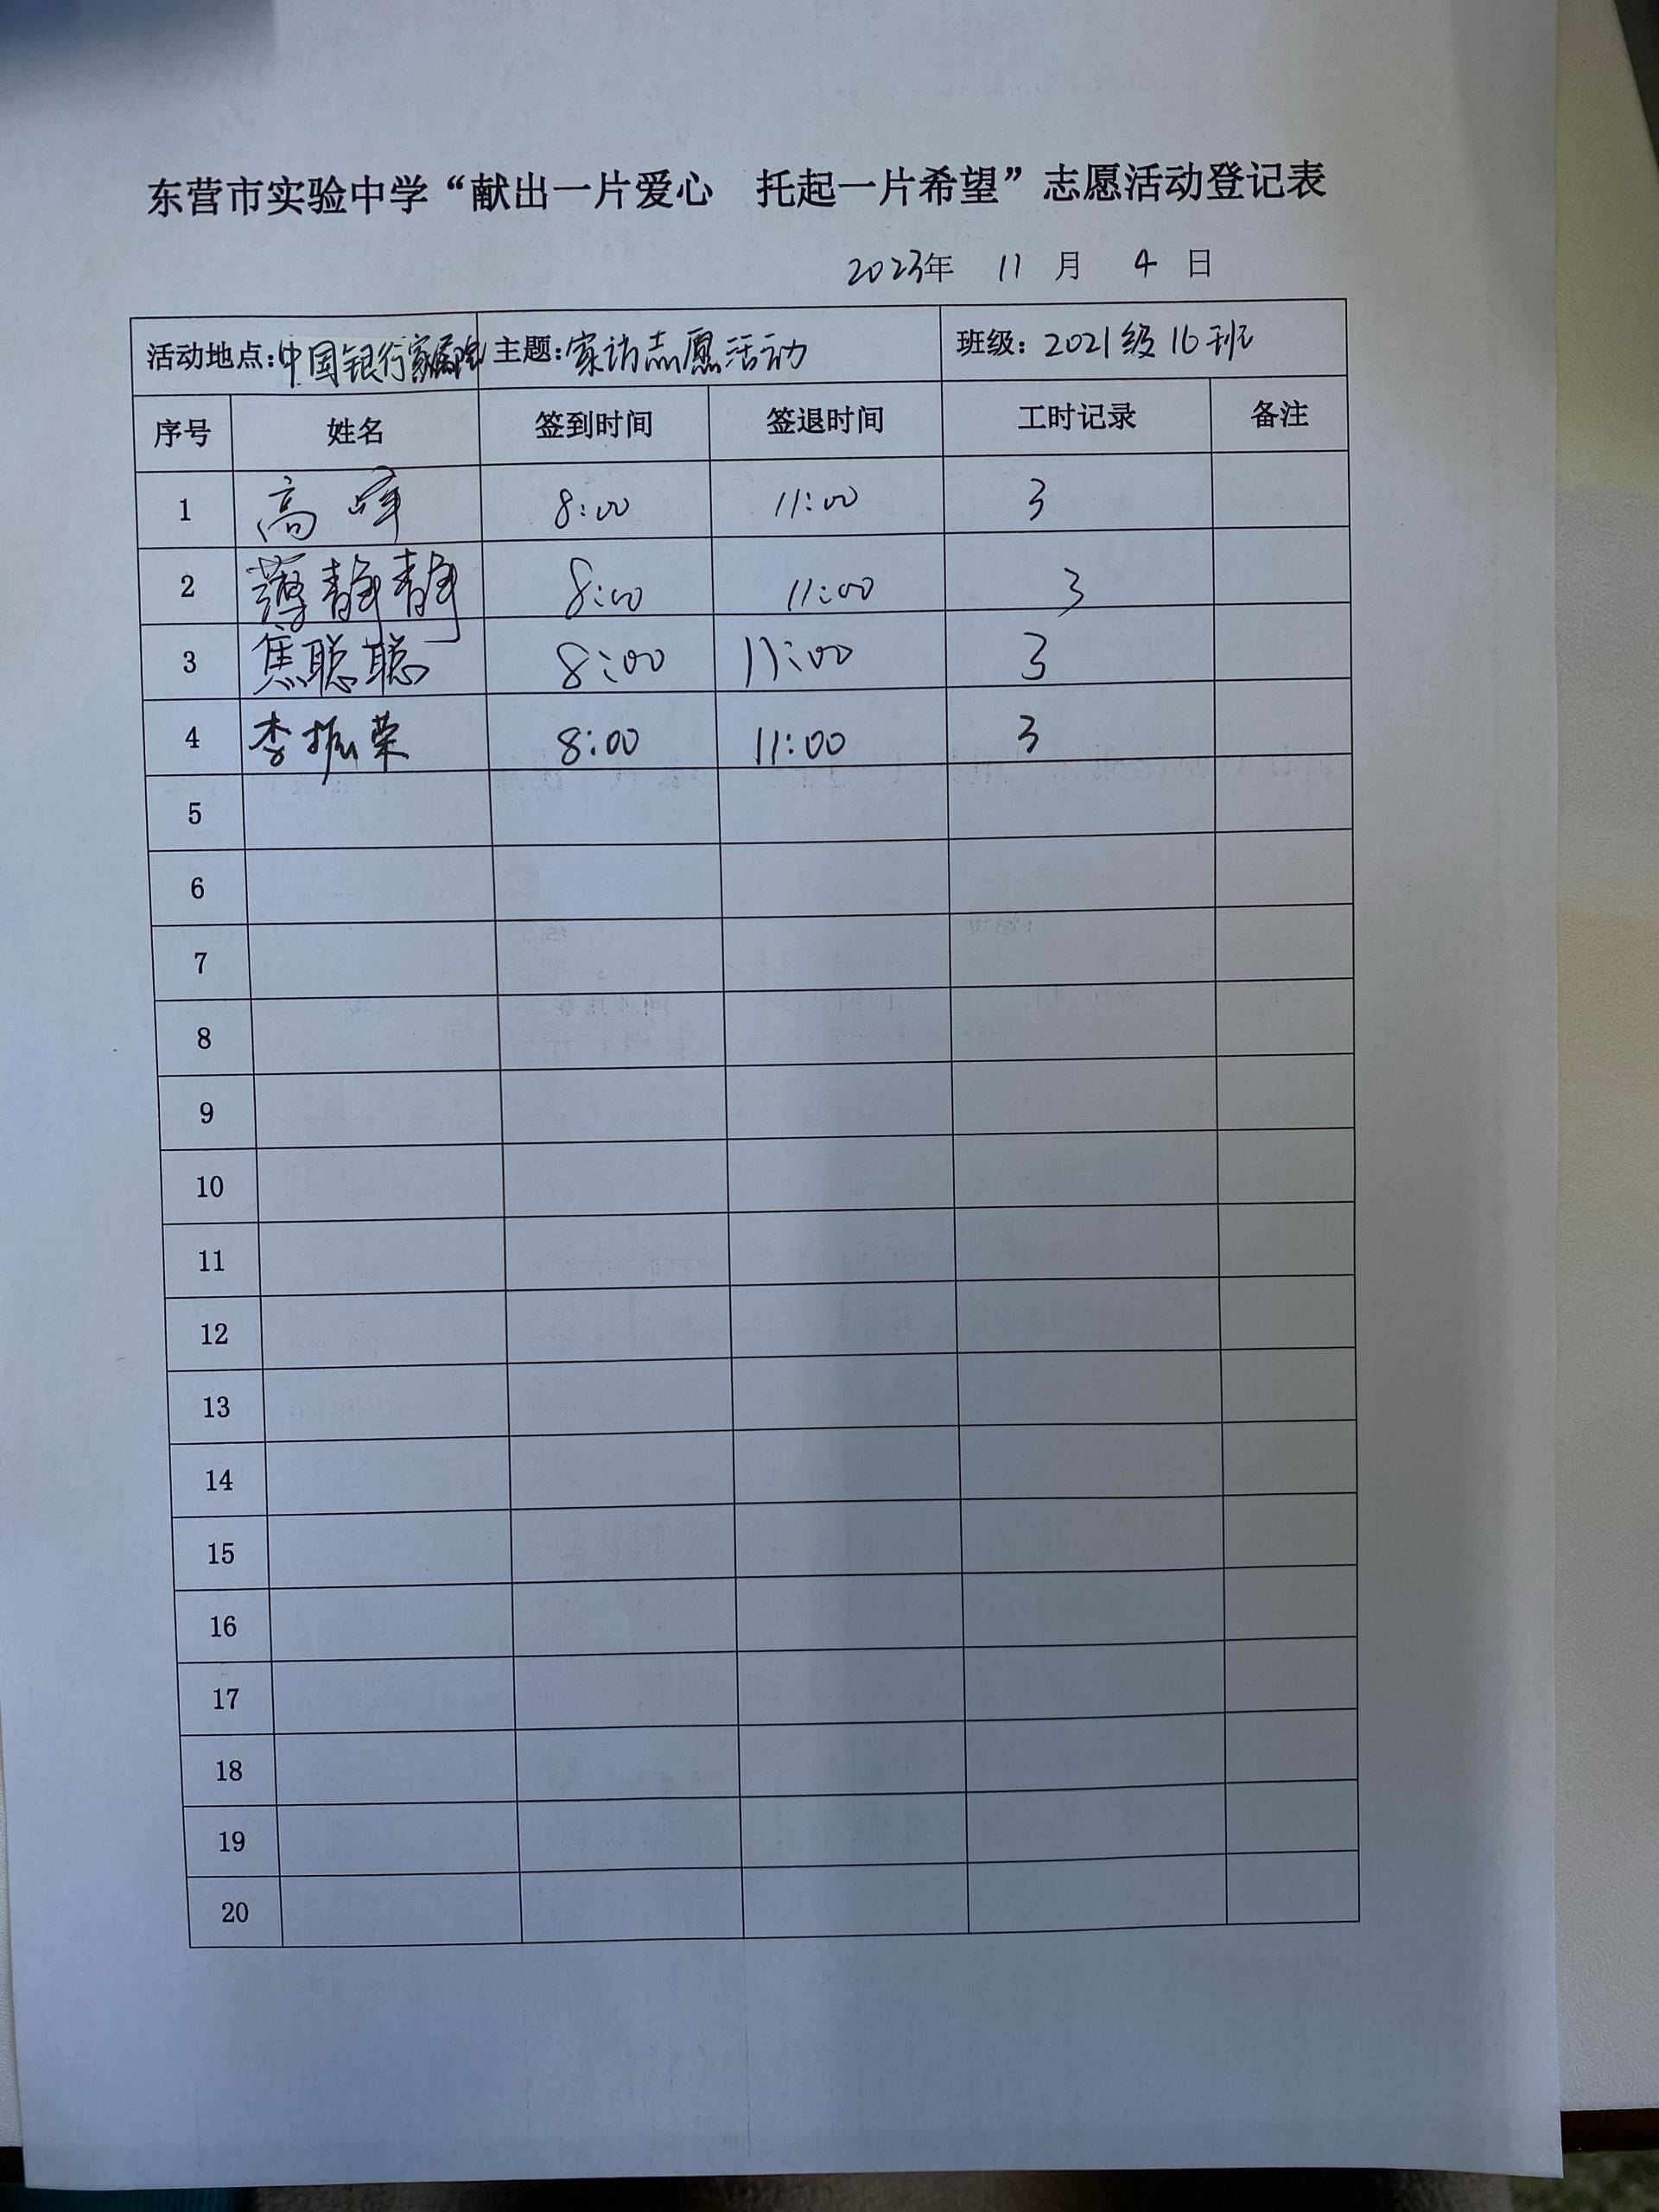 东营市实验中学“献出一片爱心 托起一片希望”志愿活动登记表
2023年 11 月 4 日
活动地点:中国银行家属院 主题:家访志愿活动 班级:2021级16班
序号 姓名 签到时间 签退时间 工时记录 备注
1 高 8:00 11:00 3
2 薄静静 8:00 11:00 3
3 焦聪聪 8:00 11:00 3
4 李振荣 8:00 11:00 3
5
6
7
8
9
10
11
12
13
14
15
16
17
18
19
20